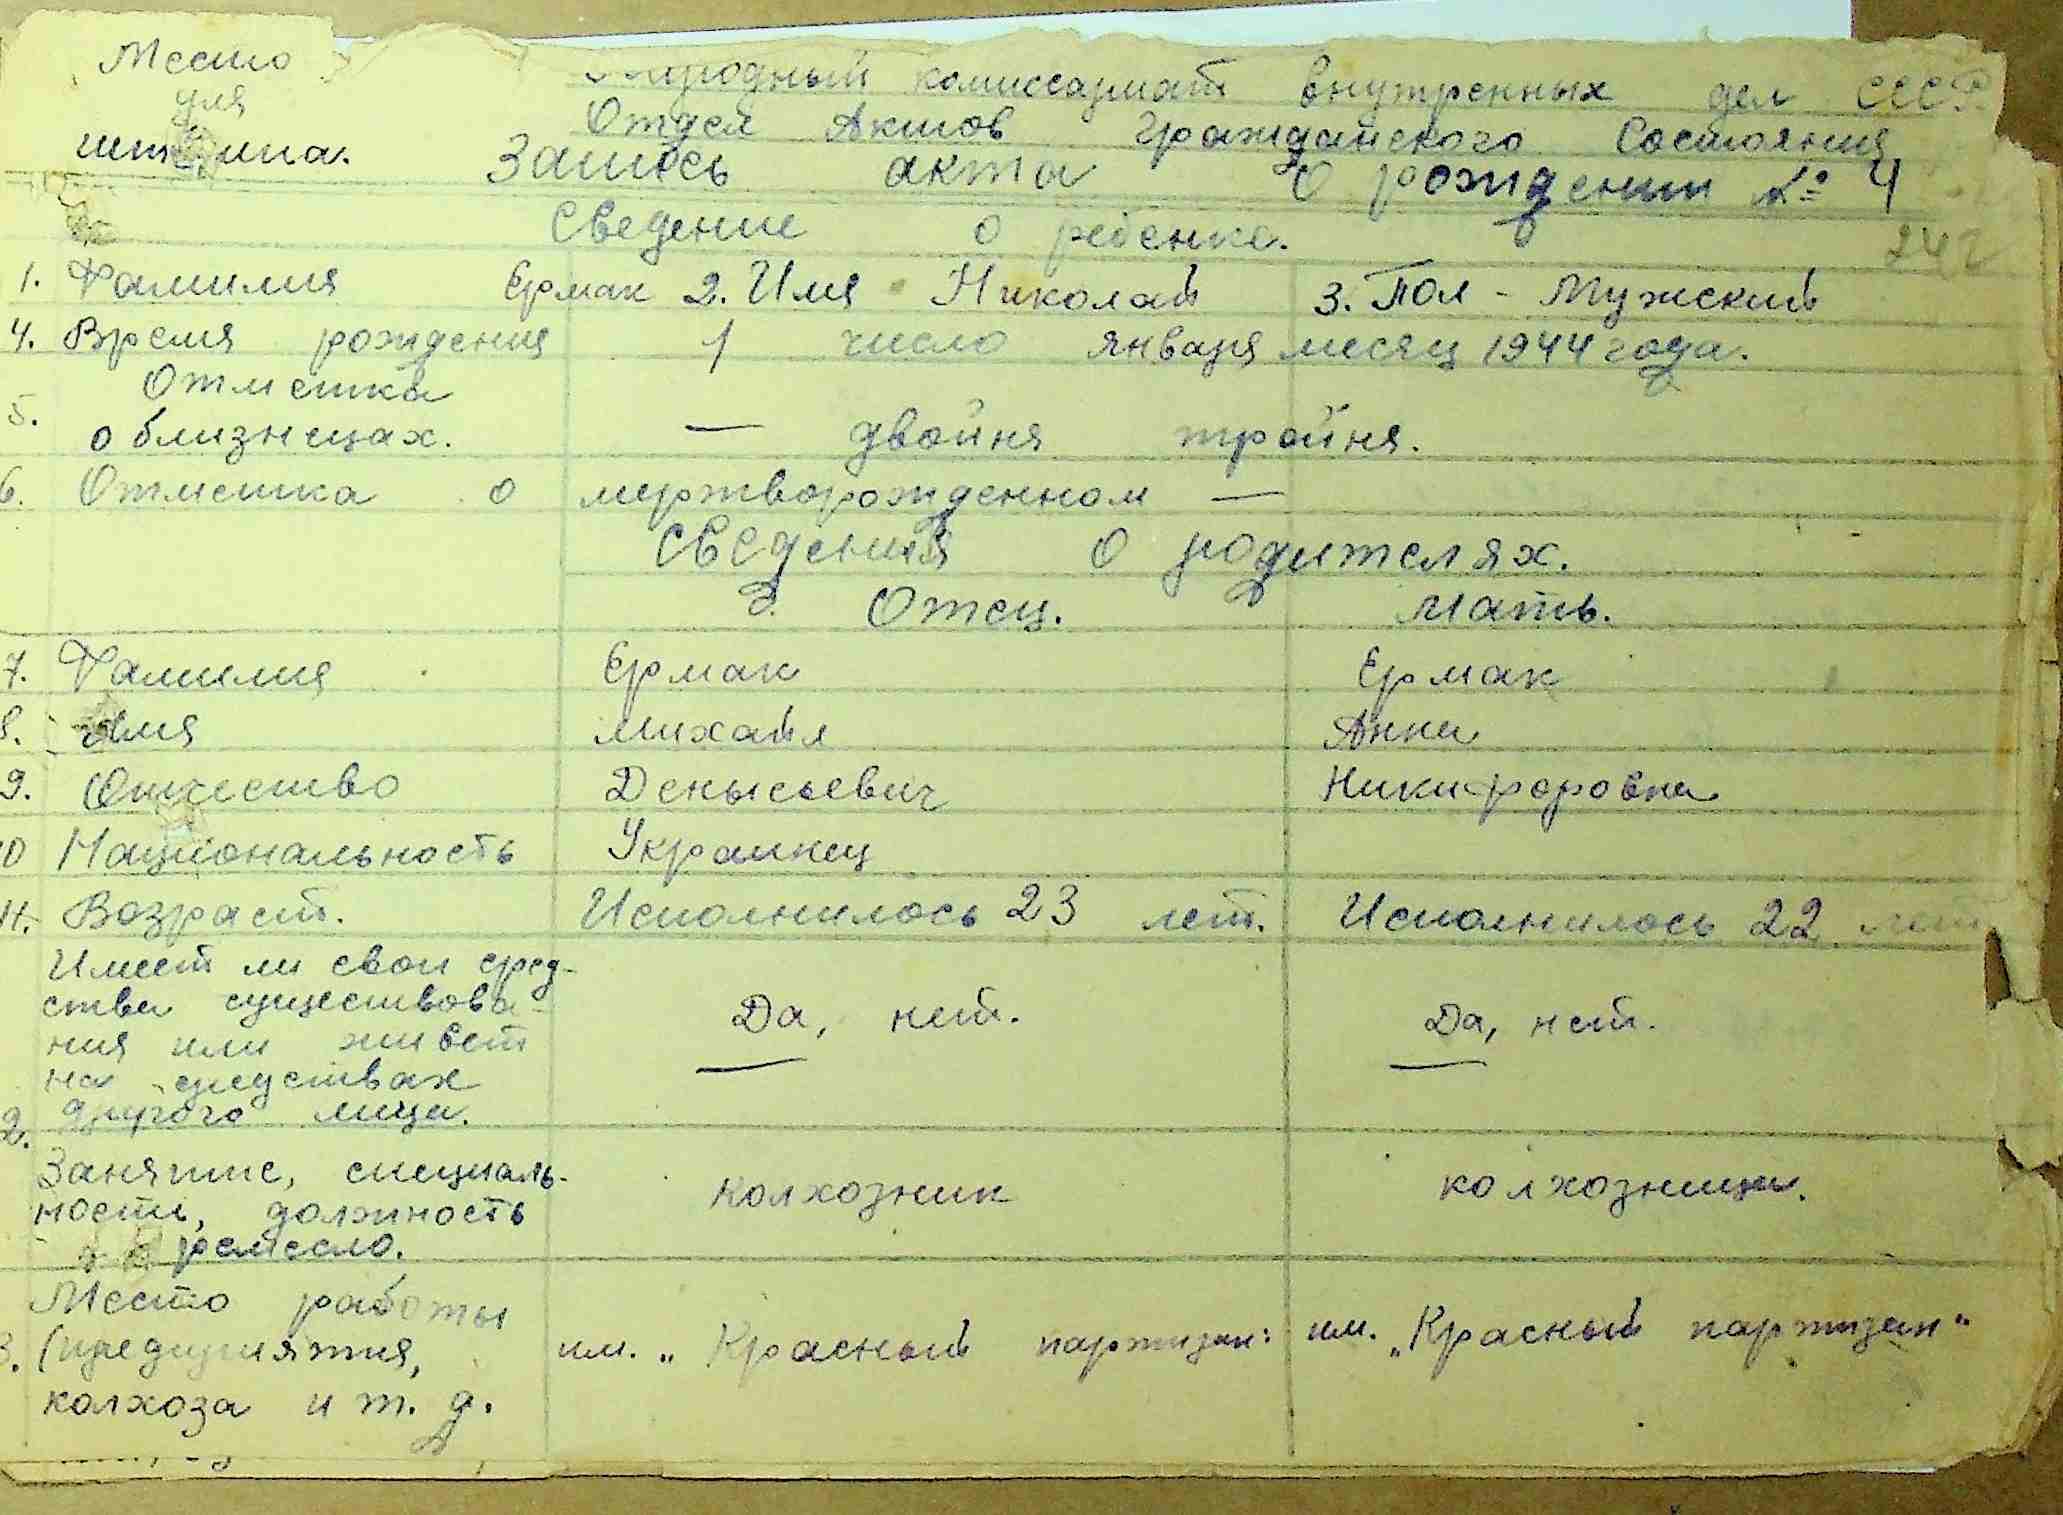 Место
для
штампа.
Народный комиссариат внутренных дел СССР.
Отдел Актов Гражданского Состояния
Запись акта о рождении № 4
Сведение о ребенке.
1. Фамилия Ермак 2. Имя Николай 3. Пол - Мужский
4. Время рождения 1 число января месяц 1944 года.
5. Отметка
о близнецах. — двойня тройня.
6. Отметка о мертворожденном —
Сведения о родителях.
Отец. Мать.
7. Фамилия Ермак Ермак
8. Имя Михайл Анна
9. Отчество Денысьевич Никифоровна
10 Национальность Украинец
11. Возраст. Исполнилось 23 лет. Исполнилось 22 лет
Имеет ли свои сред-
ства существова-
ния или живет
на средствах
другого лица.
Да, нет. Да, нет.
2. Занятие, специаль-
ность, должность
и ремесло.
колхозник колхозница.
Место работы
3. (предприятия,
колхоза и т. д.
им. „Красный партизан: им. „Красный партизан"